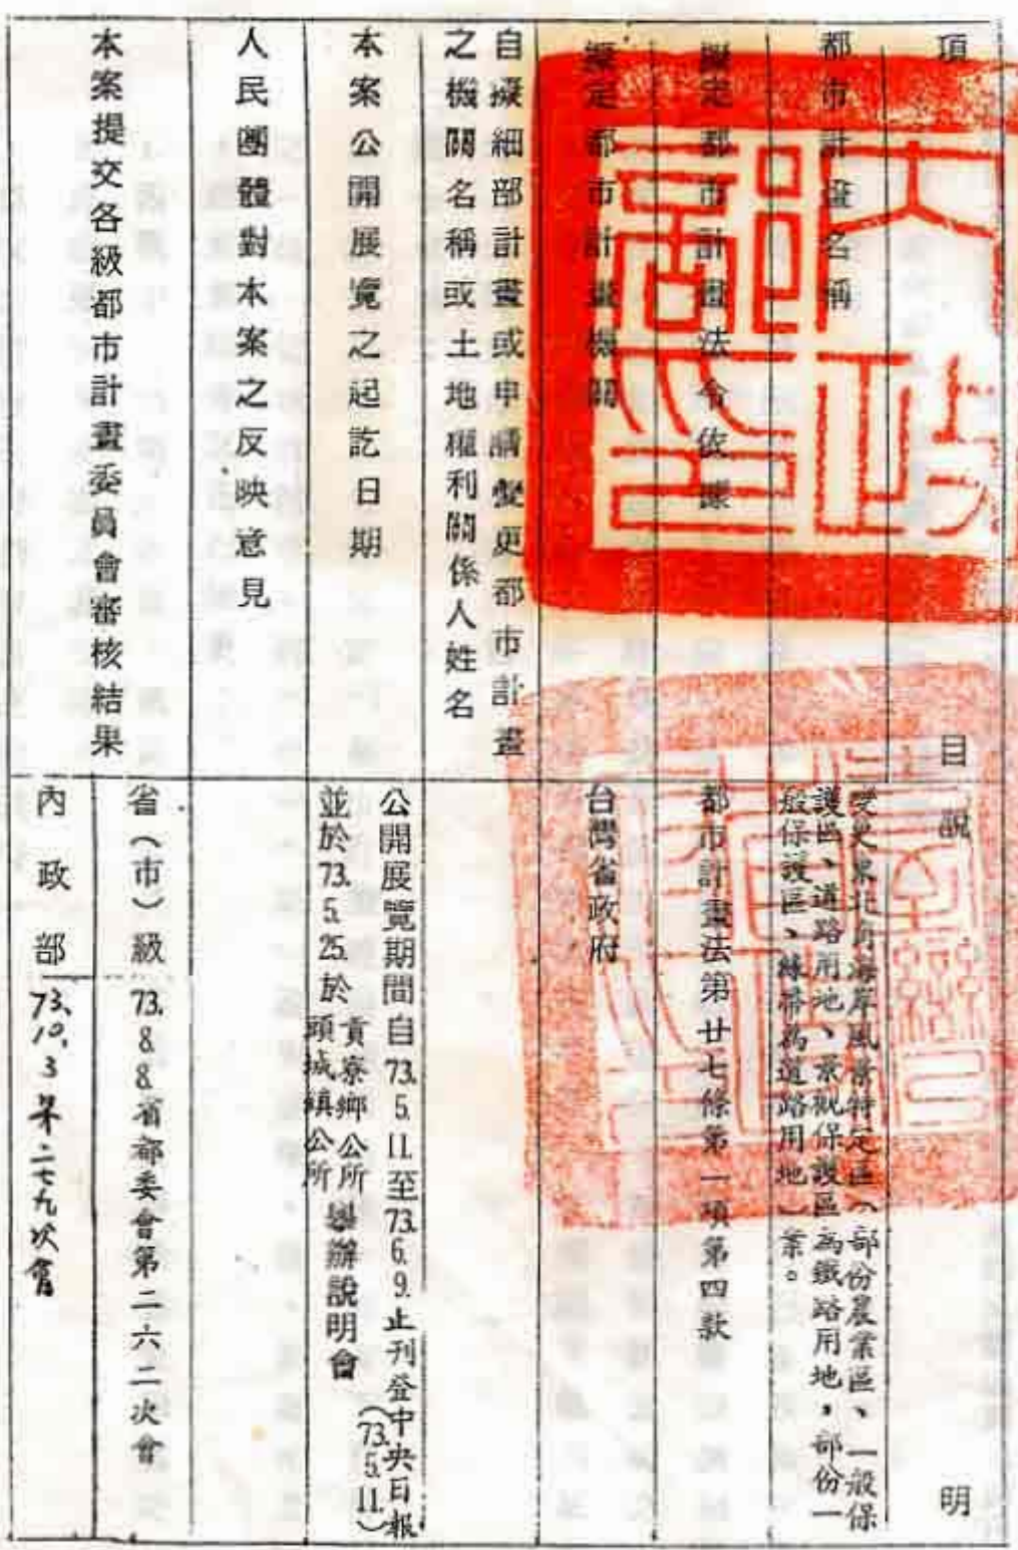 項目
說明
都市計畫名稱
變更東北角海岸風景特定區(部份農業區、一般保
護區、道路用地、景觀保護區為鐵路用地,部份一
般保護區、綠帶為道路用地)案。
擬定都市計畫法令依據
都市計畫法第廿七條第一項第四款
擬定都市計畫機關
台灣省政府
自擬細部計畫或申請變更都市計畫
之機關名稱或土地權利關係人姓名
本案公開展覽之起訖日期
公開展覽期間自73.5.11.至73.6.9.止刊登中央日報(73.5.11.)
並於73.5.25.於貢寮鄉公所頭城鎮公所舉辦說明會
人民團體對本案之反映意見
本案提交各級都市計畫委員會審核結果
省(市)級
73.8.8.省都委會第二六二次會
內政部
73.10.3第二七九次會
內政部印